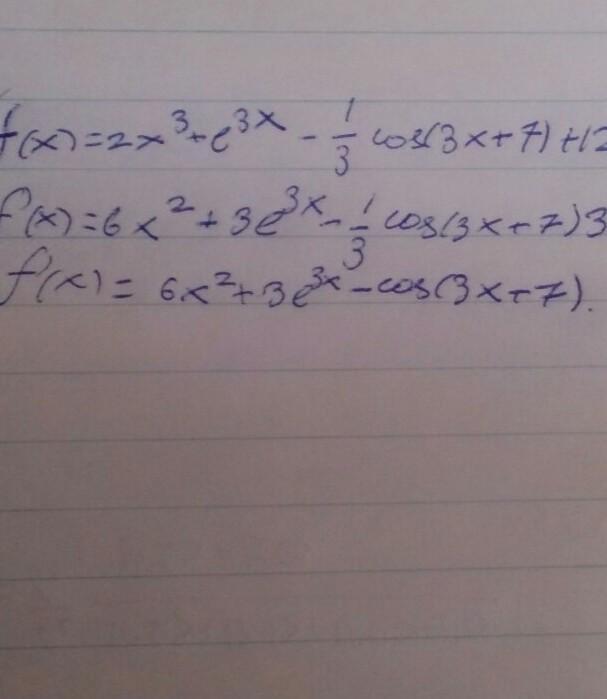 f(x)=2x³+e^3x - 1/3 cos(3x+7)+12
f'(x)=6x²+3e^3x - 1/3 cos(3x+7)3
f'(x)= 6x²+3e^3x - cos(3x+7).